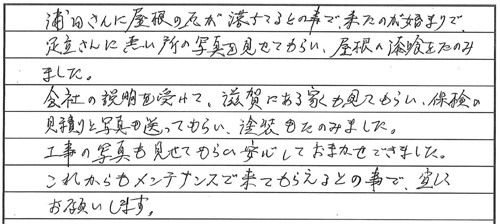 浦田さんに屋根の瓦が落ちてるとの事で、来たのが始まりで、
足立さんに悪い所の写真を見せてもらい、屋根の漆喰をたのみ
ました。
会社の説明を受けて、滋賀にある家も見てもらい、保険の
見積りと写真も送ってもらい、塗装もたのみました。
工事の写真も見せてもらい安心しておまかせできました。
これからもメンテナンスで来てもらえるとの事で、宜しく
お願いします。